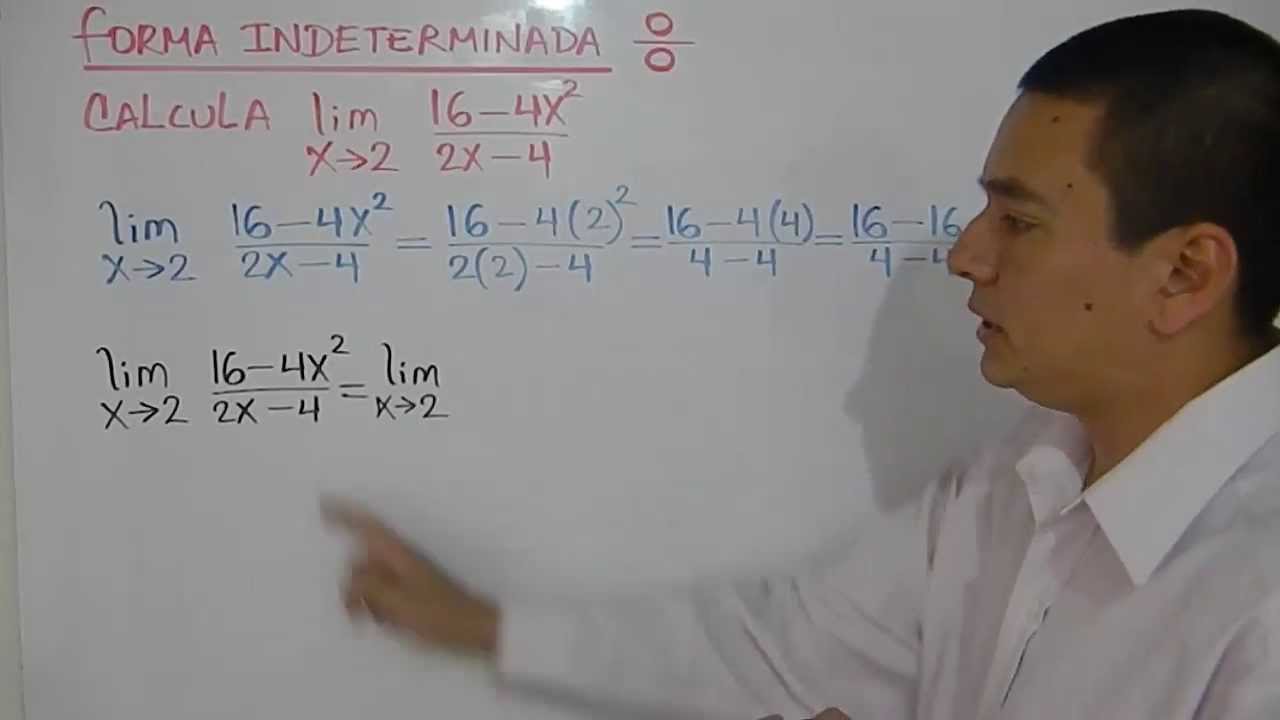 fORMA INDETERMINADA 0/0
CALCULA lim x→2 (16-4x²)/(2x-4)
lim x→2 (16-4x²)/(2x-4) = (16-4(2)²)/(2(2)-4) = (16-4(4))/(4-4) = (16-16)/(4-4
lim x→2 (16-4x²)/(2x-4) = lim x→2